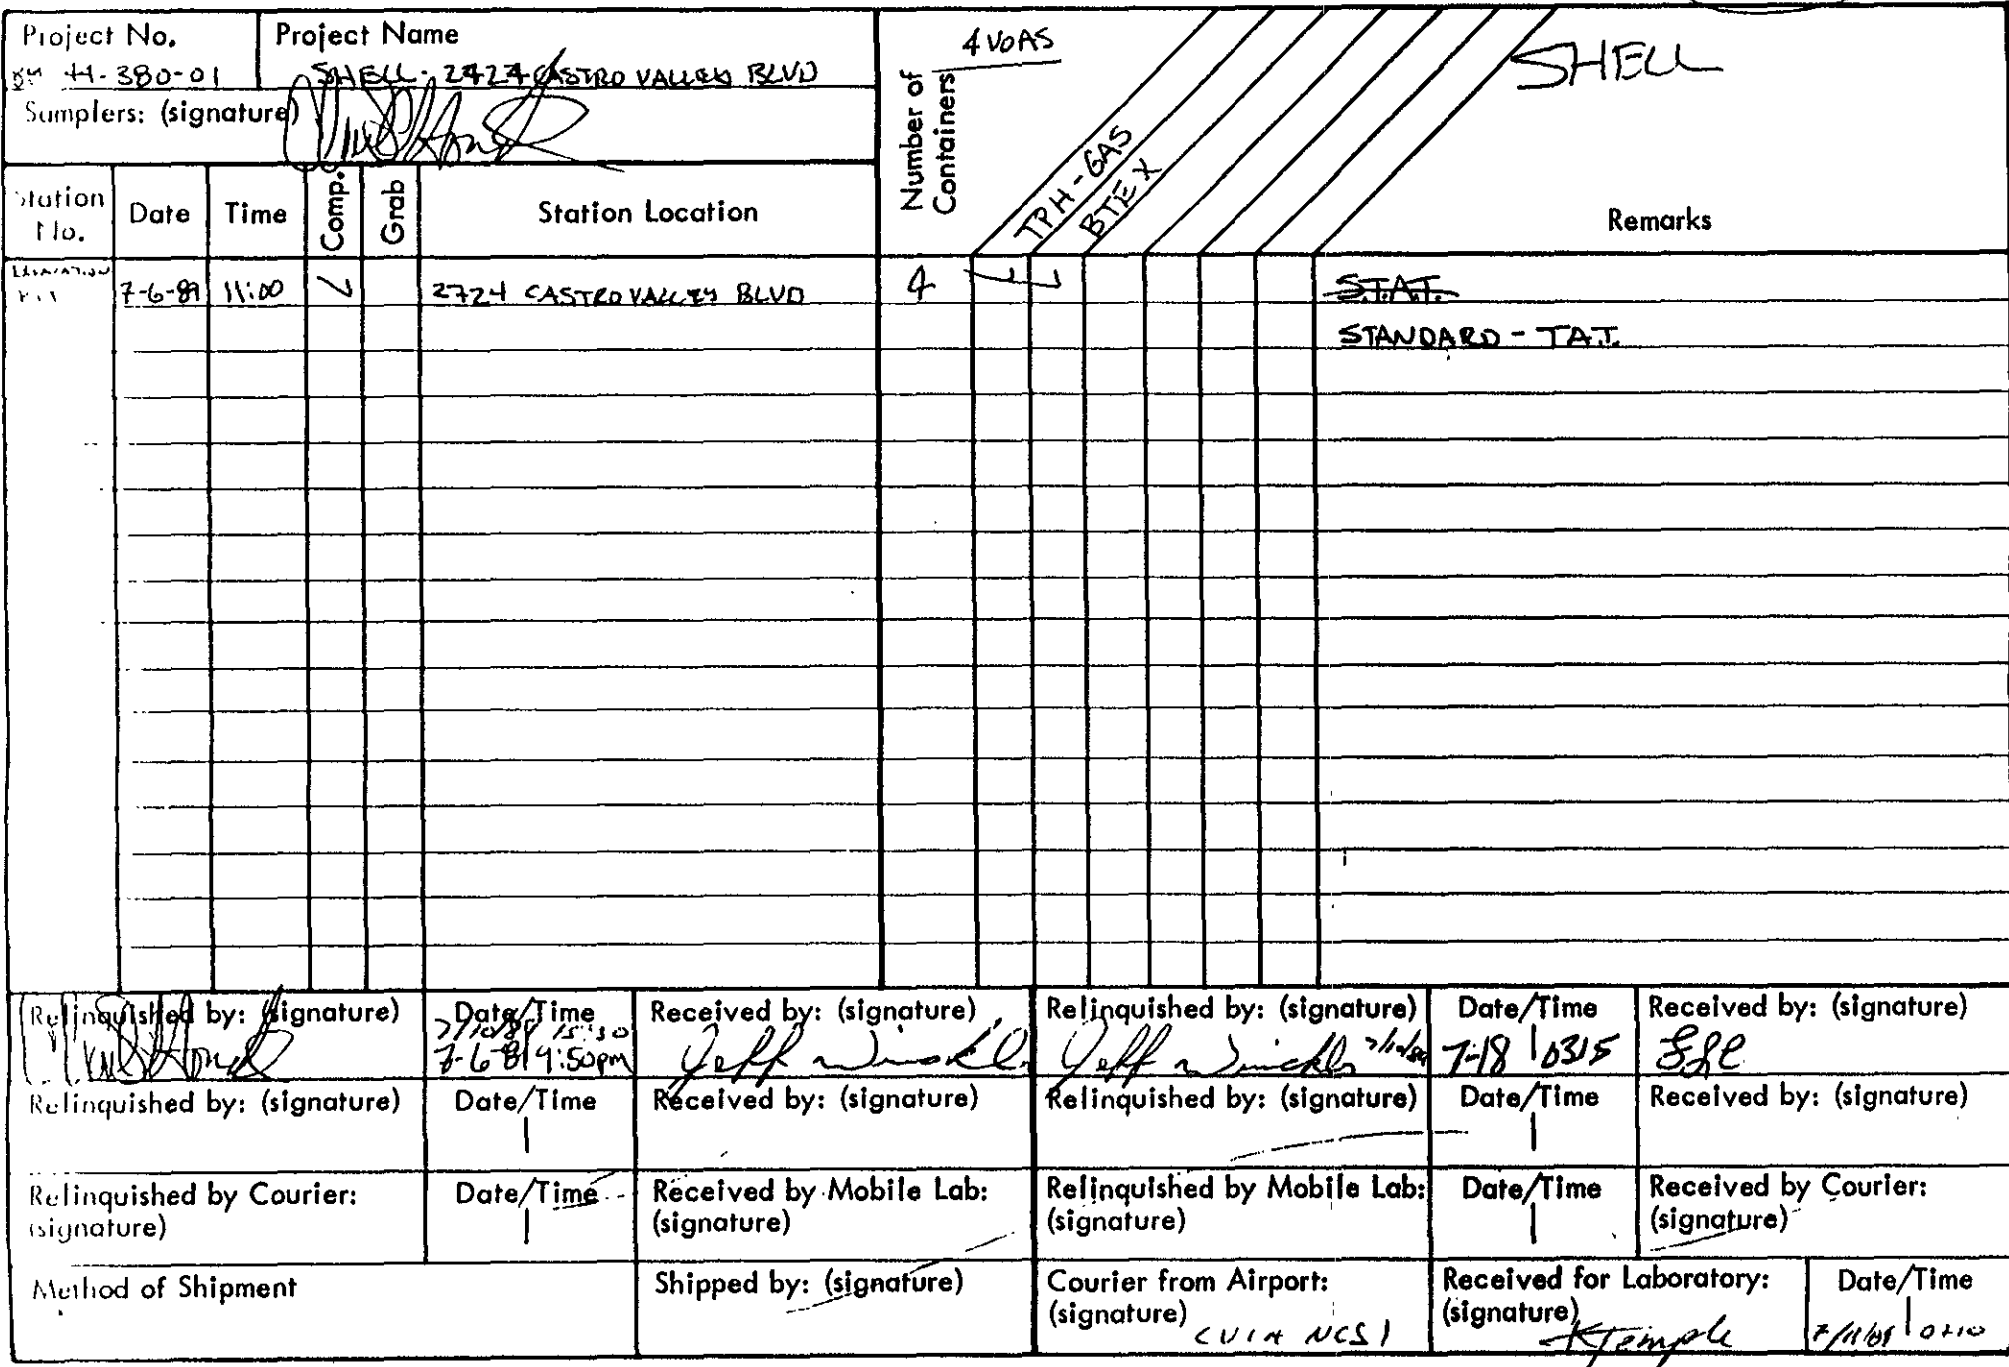 Project No.
44-380-01
Project Name
SHELL - 2724 CASTRO VALLEY BLVD
Samplers: (signature)
Number of Containers
4 VOAS
TPH-GAS
BTEX
SHELL
Remarks
Station No.
Date
Time
Comp.
Grab
Station Location
7-6-89 11:00 ✓ 2724 CASTRO VALLEY BLVD 4 ✓ ✓ S.T.A.T.
STANDARD - T.A.T.
Relinquished by: (signature)
Date/Time
7/10/89 15:30
7-6-89 4:50pm
Received by: (signature)
Jeff Winckler
Relinquished by: (signature)
Jeff Winckler 7/10/89
Date/Time
7-18 0315
Received by: (signature)
Relinquished by: (signature)
Date/Time
Received by: (signature)
Relinquished by: (signature)
Date/Time
Received by: (signature)
Relinquished by Courier: (signature)
Date/Time
Received by Mobile Lab: (signature)
Relinquished by Mobile Lab: (signature)
Date/Time
Received by Courier: (signature)
Method of Shipment
Shipped by: (signature)
Courier from Airport: (signature)
NCS1
Received for Laboratory: (signature)
KTemple
Date/Time
7/11/89